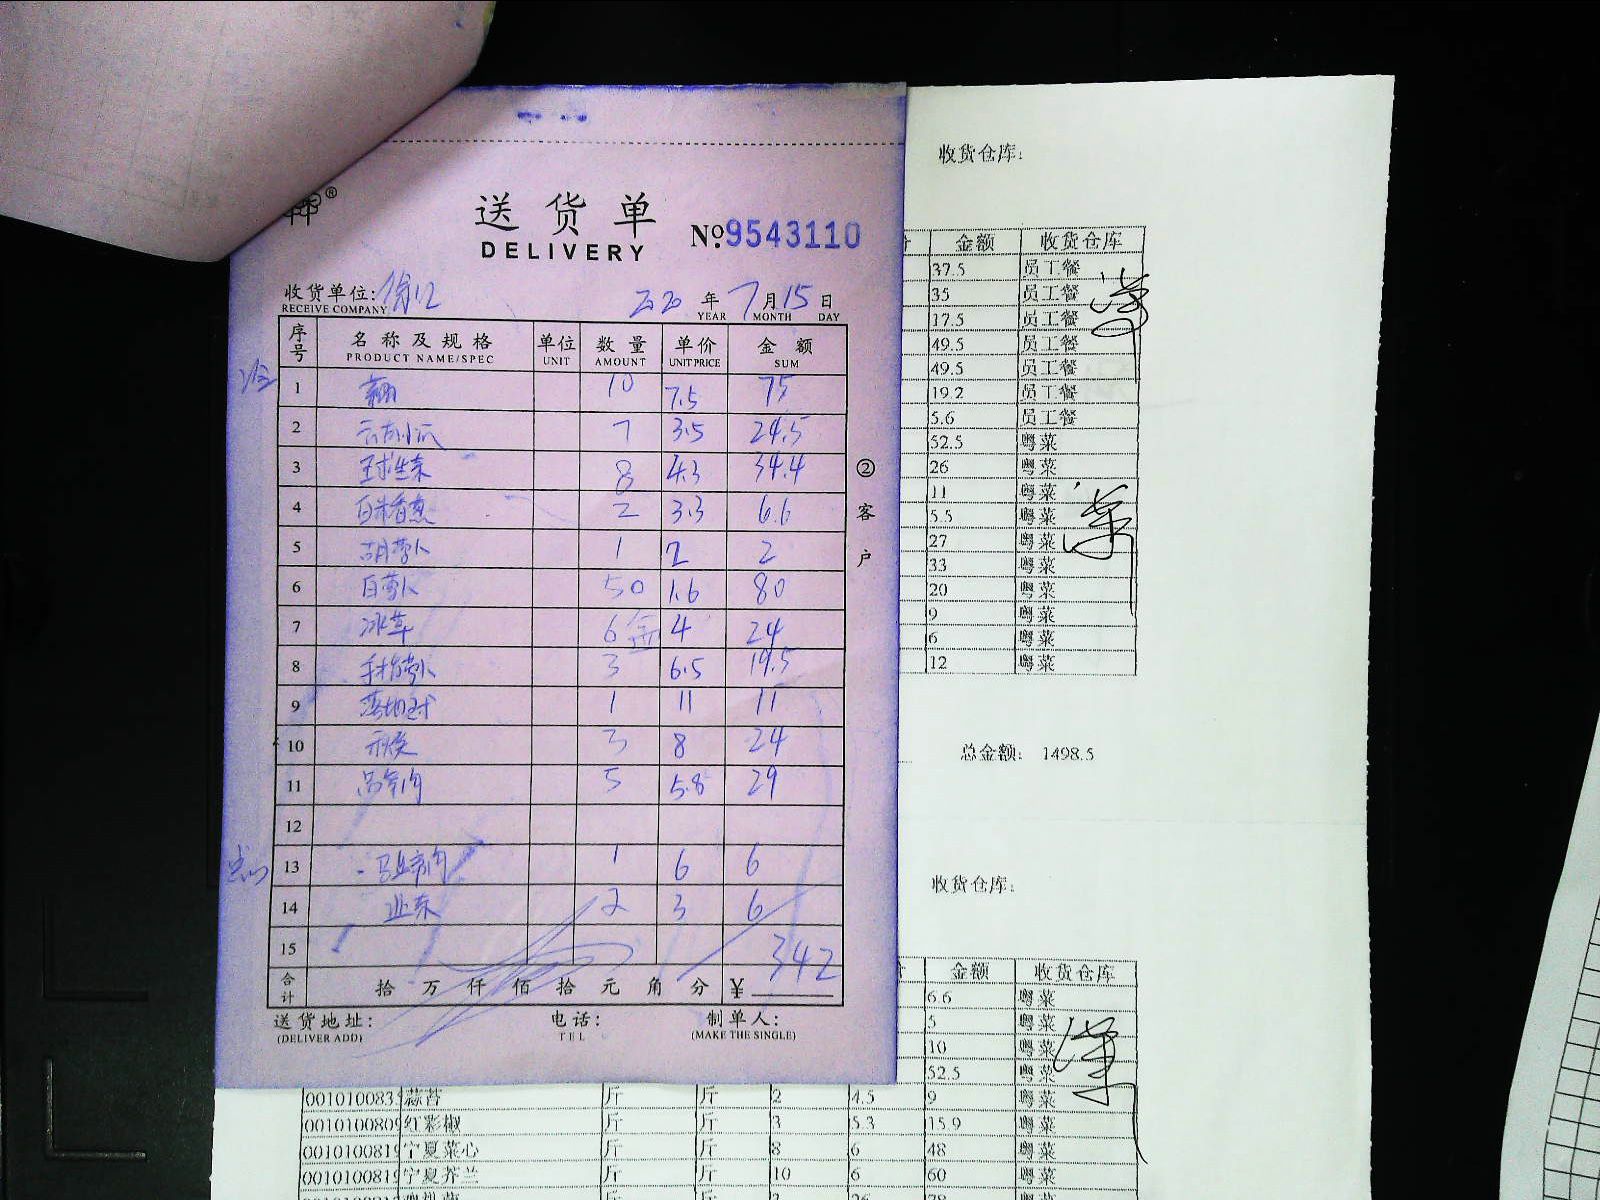 送货单
DELIVERY
№ 9543110
收货单位:
RECEIVE COMPANY
2020 年 7 月 15 日
YEAR MONTH DAY
序号 名称及规格 单位 数量 单价 金额
PRODUCT NAME/SPEC UNIT AMOUNT UNIT PRICE SUM
1 10 7.5 75
2 7 3.5 24.5
3 球生菜 8 4.3 34.4
4 2 3.3 6.6
5 胡萝卜 1 2 2
6 白萝卜 50 1.6 80
7 冰草 6盒 4 24
8 手指萝卜 3 6.5 19.5
9 1 11 11
10 3 8 24
11 5 5.8 29
12
13 1 6 6
14 2 3 6
15 342
合计 拾 万 仟 佰 拾 元 角 分 ¥
送货地址: 电话: 制单人:
(DELIVER ADD) TEL (MAKE THE SINGLE)
② 客户
收货仓库:
金额 收货仓库
37.5 员工餐
35 员工餐
17.5 员工餐
49.5 员工餐
49.5 员工餐
19.2 员工餐
5.6 员工餐
52.5 粤菜
26 粤菜
11 粤菜
5.5 粤菜
27 粤菜
33 粤菜
20 粤菜
9 粤菜
6 粤菜
12 粤菜
总金额: 1498.5
收货仓库:
金额 收货仓库
6.6 粤菜
5 粤菜
10 粤菜
52.5 粤菜
蒜苔 斤 斤 2 4.5 9 粤菜
红彩椒 斤 斤 3 5.3 15.9 粤菜
宁夏菜心 斤 斤 8 6 48 粤菜
宁夏芥兰 斤 斤 10 6 60 粤菜